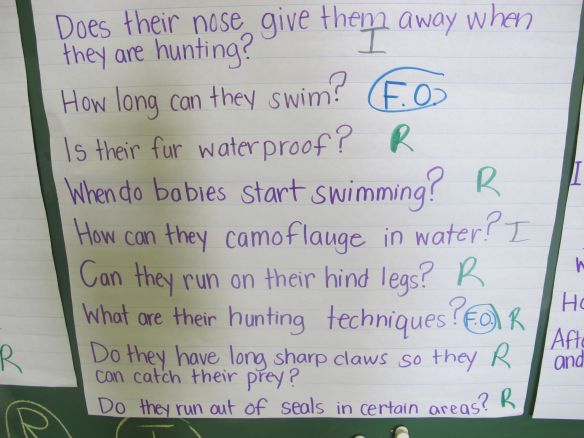 Does their nose give them away when
they are hunting? I
How long can they swim? F.O.
Is their fur waterproof? R
When do babies start swimming? R
How can they camoflauge in water? I
Can they run on their hind legs? R
What are their hunting techniques? F.O. R
Do they have long sharp claws so they R
can catch their prey?
Do they run out of seals in certain areas? R
R
R
I
I
Ho
Afte
and